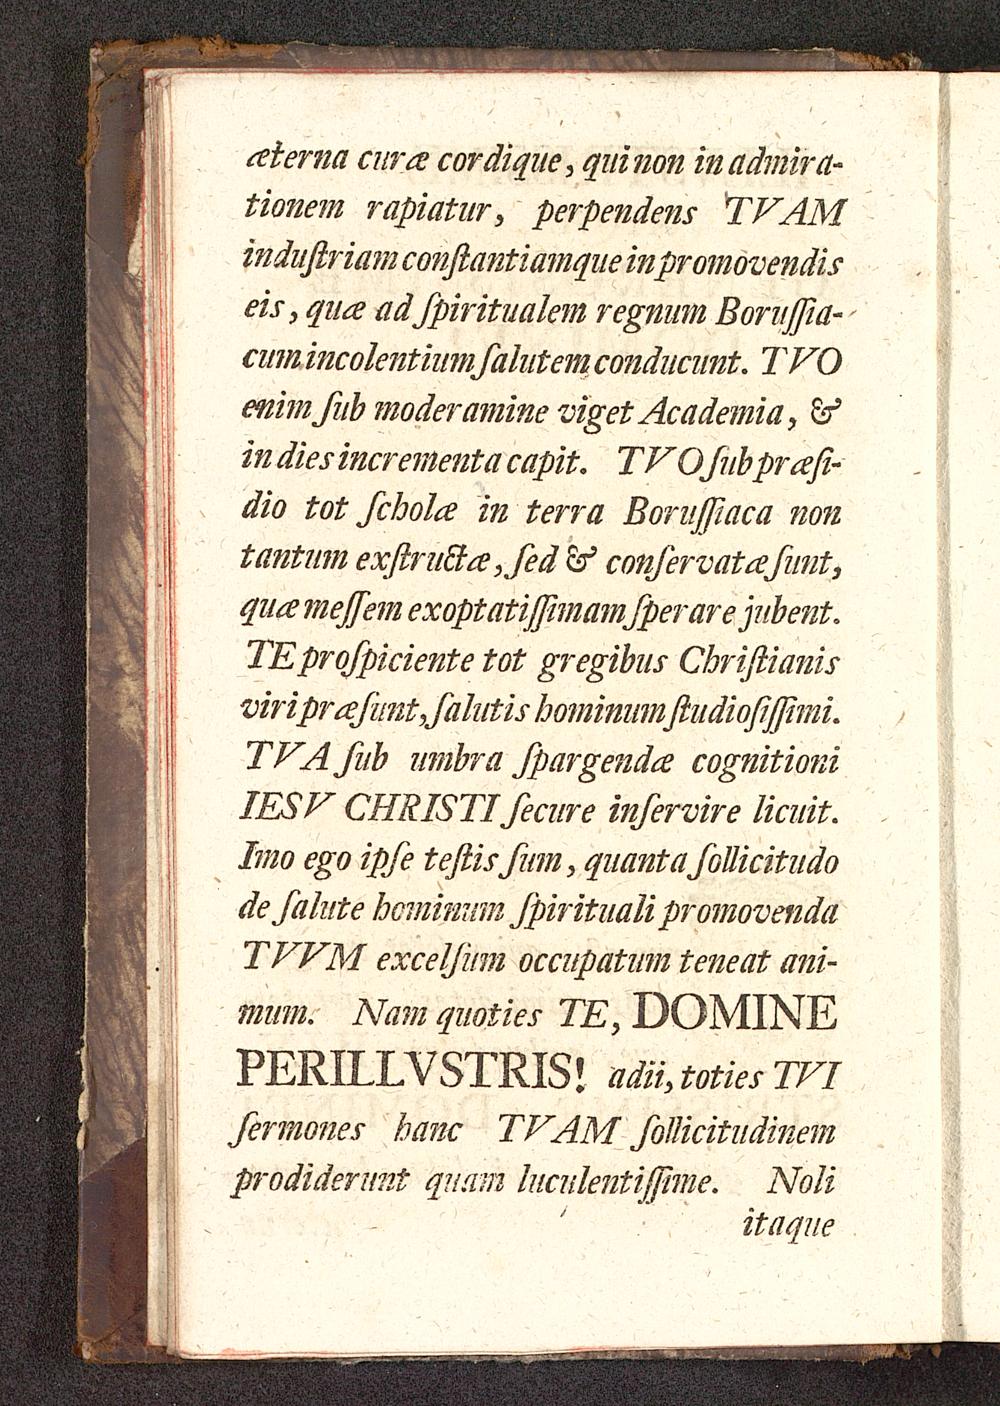 æterna curæ cordique, qui non in admira-
tionem rapiatur, perpendens TVAM
induſtriam conſtantiamque in promovendis
eis, quæ ad ſpiritualem regnum Boruſſia-
cum incolentium ſalutem conducunt. TVO
enim ſub moderamine viget Academia, &
in dies incrementa capit. TVO ſub præſi-
dio tot ſcholæ in terra Boruſſiaca non
tantum exſtructæ, ſed & conſervatæ ſunt,
quæ meſſem exoptatiſſimam ſperare jubent.
TE proſpiciente tot gregibus Chriſtianis
viri præſunt, ſalutis hominum ſtudioſiſſimi.
TVA ſub umbra ſpargendæ cognitioni
IESV CHRISTI ſecure inſervire licuit.
Imo ego ipſe teſtis ſum, quanta ſollicitudo
de ſalute hominum ſpirituali promovenda
TVVM excelſum occupatum teneat ani-
mum. Nam quoties TE, DOMINE
PERILLVSTRIS! adii, toties TVI
ſermones hanc TVAM ſollicitudinem
prodiderunt quam luculentiſſime. Noli
itaque